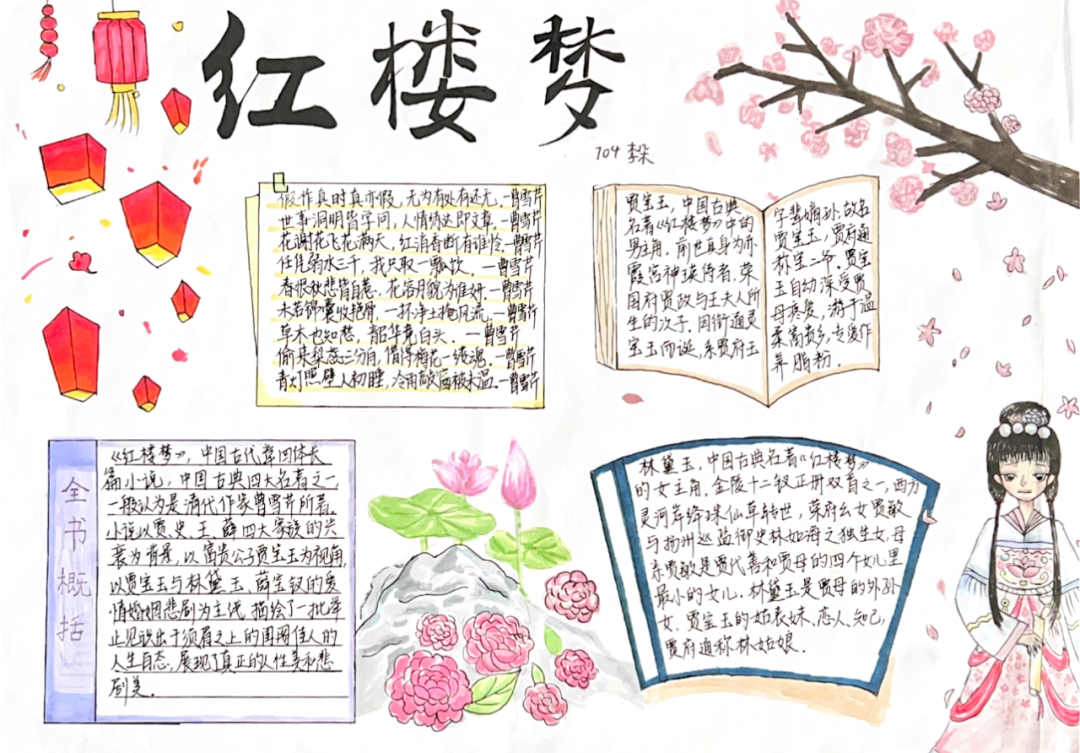 红楼梦
704 李朵
假作真时真亦假,无为有处有还无.—曹雪芹
世事洞明皆学问,人情练达即文章.—曹雪芹
花谢花飞花满天,红消香断有谁怜.—曹雪芹
任凭弱水三千,我只取一瓢饮.—曹雪芹
春恨秋悲皆自惹,花容月貌为谁妍.—曹雪芹
未若锦囊收艳骨,一抔净土掩风流.—曹雪芹
草木也知愁,韶华竟白头.—曹雪芹
偷来梨蕊三分白,借得梅花一缕魂.—曹雪芹
青灯照壁人初睡,冷雨敲窗被未温.—曹雪芹
贾宝玉,中国古典
名著《红楼梦》中的
男主角.前世真身为赤
霞宫神瑛侍者.荣
国府贾政与王夫人所
生的次子.因衔通灵
宝玉而诞,系贾府玉
字辈嫡孙.故名
贾宝玉,贾府通
称宝二爷.贾宝
玉自幼深受贾
母疼爱,游于温
柔富贵乡,专爱作
弄脂粉.
全书概括
《红楼梦》,中国古代章回体长
篇小说,中国古典四大名著之一
一般认为是清代作家曹雪芹所著.
小说以贾、史、王、薛四大家族的兴
衰为背景,以富贵公子贾宝玉为视角,
以贾宝玉与林黛玉、薛宝钗的爱
情婚姻悲剧为主线.描绘了一批举
止见识出于须眉之上的闺阁佳人的
人生百态,展现了真正的人性美和悲
剧美.
林黛玉,中国古典名著《红楼梦》
的女主角,金陵十二钗正册双首之一,西方
灵河岸绛珠仙草转世,荣府幺女贾敏
与扬州巡盐御史林如海之独生女.母
亲贾敏是贾代善和贾母的四个女儿里
最小的女儿.林黛玉是贾母的外孙
女,贾宝玉的姑表妹、恋人、知己,
贾府通称林姑娘.